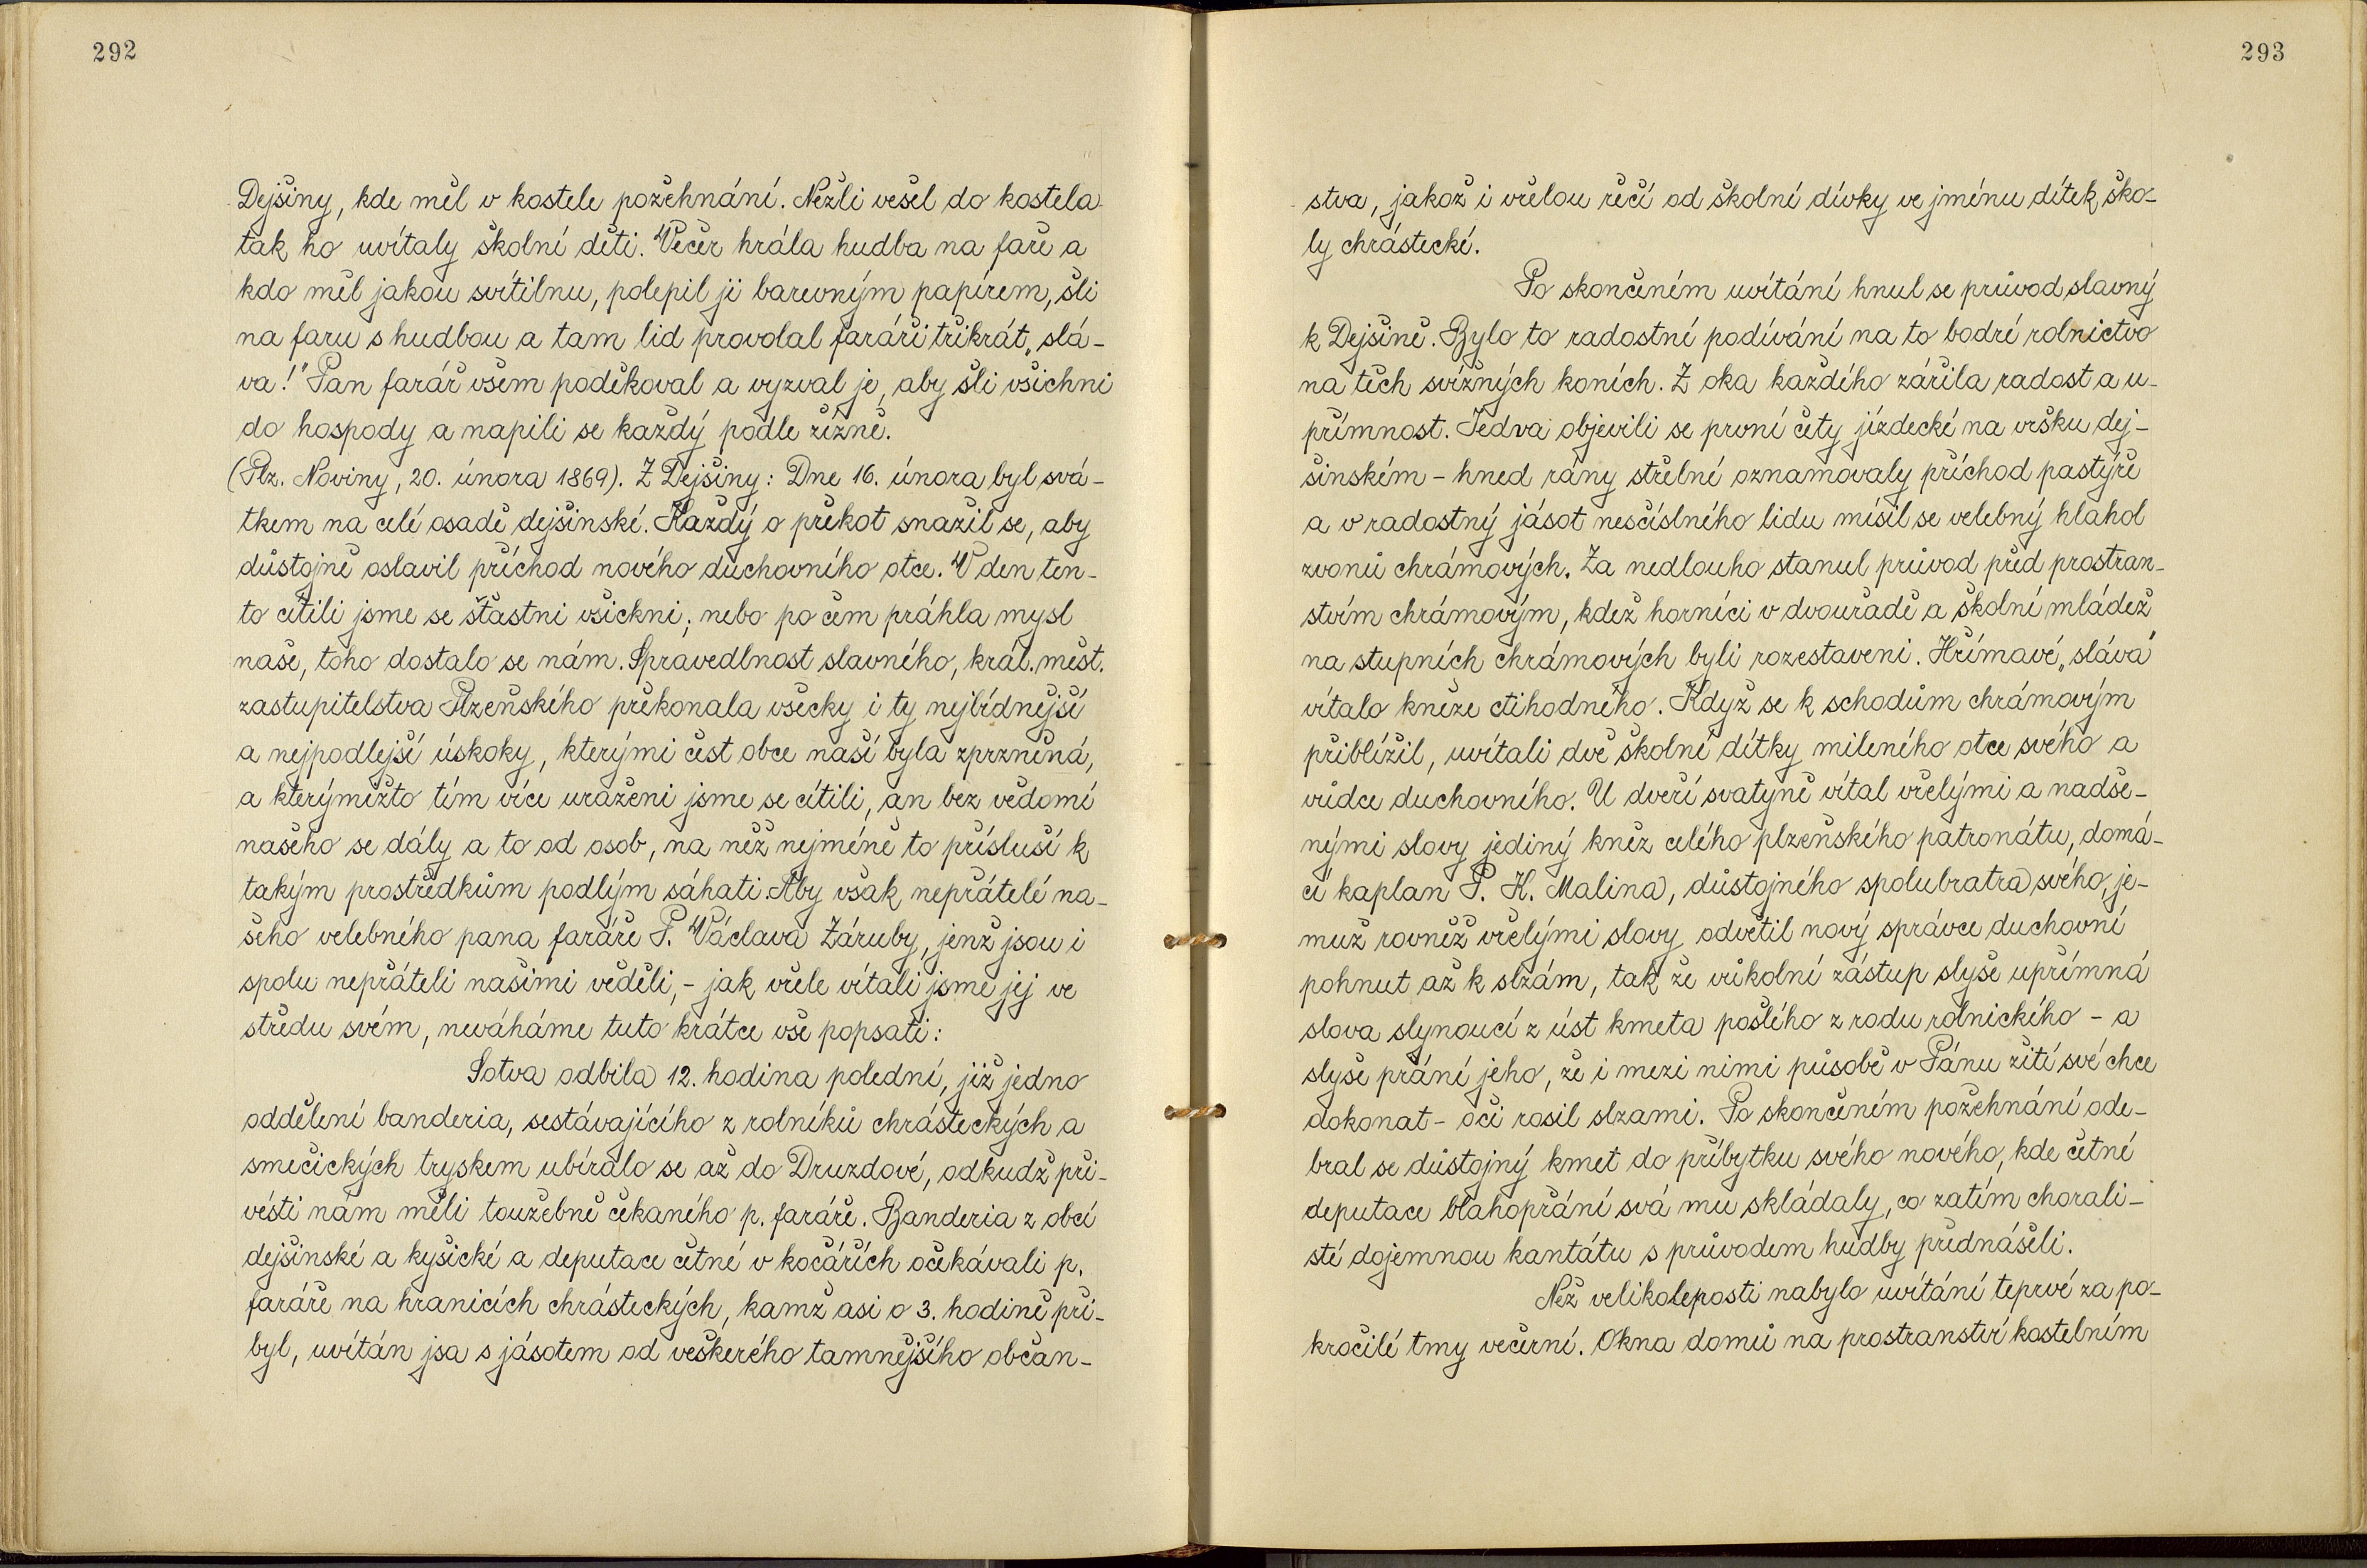 292
Dejšiny, kde měl v kostele požehnání. Nežli vešel do kostela
tak ho uvítaly školní děti. Večer hrála hudba na faře a
kdo měl jakou svítilnu, polepil ji barevným papírem, šli
na faru s hudbou a tam lid provolal faráři třikrát „slá-
va!" Pan farář všem poděkoval a vyzval je, aby šli všichni
do hospody a napili se každý podle žízně.
(Plz. Noviny, 20. února 1869). Z Dejšiny: Dne 16. února byl svá-
tkem na celé osadě dejšinské. Každý o překot snažil se, aby
důstojně oslavil příchod nového duchovního otce. V den ten-
to cítili jsme se šťastni všickni; nebo po čem práhla mysl
naše, toho dostalo se nám. Spravedlnost slavného, král. měst.
zastupitelstva Plzeňského překonala všecky i ty nejbídnější
a nejpodlejší úskoky, kterými čest obce naší byla zprzněná,
a kterýmižto tím více uraženi jsme se cítili, an bez vědomí
našeho se dály a to od osob, na něž nejméně to přísluší k
takým prostředkům podlým sáhati. Aby však nepřátelé na-
šeho velebného pana faráře P. Václava Záruby, jenž jsou i
spolu nepřáteli našimi věděli, - jak vřele vítali jsme jej ve
středu svém, neváháme tuto krátce vše popsati:
Sotva odbila 12. hodina polední, již jedno
oddělení banderia, sestávajícího z rolníků chrásteckých a
smečických tryskem ubíralo se až do Druzdové, odkudž při-
vésti nám měli touzebně čekaného p. faráře. Banderia z obcí
dejšinské a kyšické a deputace četné v kočářích očekávali p.
faráře na hranicích chrásteckých, kamž asi o 3. hodině při-
byl, uvítán jsa s jásotem od veškerého tamnějšího občan-
293
stva, jakož i vřelou řečí od školní dívky ve jménu dítek ško-
ly chrástecké.
Po skončeném uvítání hnul se průvod slavný
k Dejšině. Bylo to radostní podívání na to bodré rolnictvo
na těch svížných koních. Z oka každého zářila radost a u-
přímnost. Jedva objevili se první čety jízdecké na vršku dej-
šinském - hned rány střelné oznamovaly příchod pastýře
a v radostný jásot nesčíslného lidu mísil se velebný hlahol
zvonů chrámových. Za nedlouho stanul průvod před prostran-
stvím chrámovým, kdež horníci v dvouřadě a školní mládež
na stupních chrámových byli rozestaveni. Hřímavé „sláva"
vítalo kněze ctihodného. Když se k schodům chrámovým
přiblížil, uvítali dvě školní dítky mileného otce svého a
vůdce duchovního. U dveří svatyně vítal vřelými a nadše-
nými slovy jediný kněz celého plzeňského patronátu, domá-
cí kaplan P. H. Malina, důstojného spolubratra svého, je-
muž rovněž vřelými slovy odvětil nový správce duchovní
pohnut až k slzám, tak že vůkolní zástup slyše upřímná
slova slynoucí z úst kmeta pošlého z rodu rolnického - a
slyše přání jeho, že i mezi nimi působě v Pánu žití své chce
dokonat - oči rosil slzami. Po skončeném požehnání ode-
bral se důstojný kmet do příbytku svého nového, kde četné
deputace blahopřání svá mu skládaly, co zatím chorali-
sté dojemnou kantátu s průvodem hudby přednášeli.
Než velikoleposti nabylo uvítání teprvé za po-
kročilé tmy večerní. Okna domů na prostranství kostelním